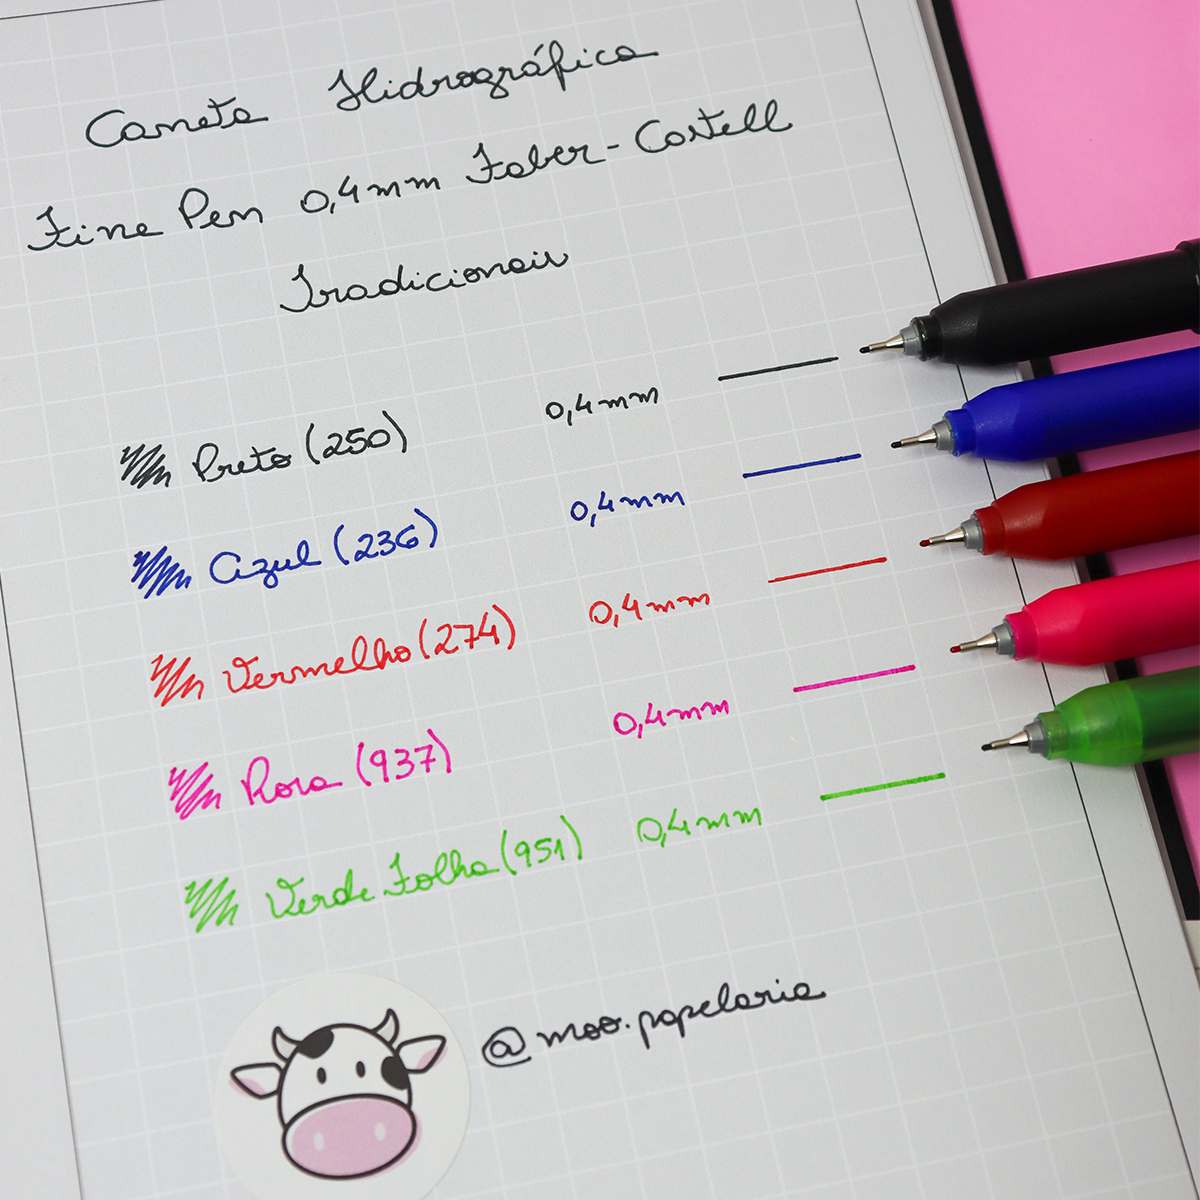 Caneta Hidrográfica
Fine Pen 0,4mm Faber-Castell
Tradicionais
Preto (250) 0,4mm
Azul (236) 0,4mm
Vermelho (274) 0,4mm
Rosa (937) 0,4mm
Verde Folha (951) 0,4mm
@moo.papelaria